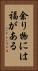 余り物には
福がある